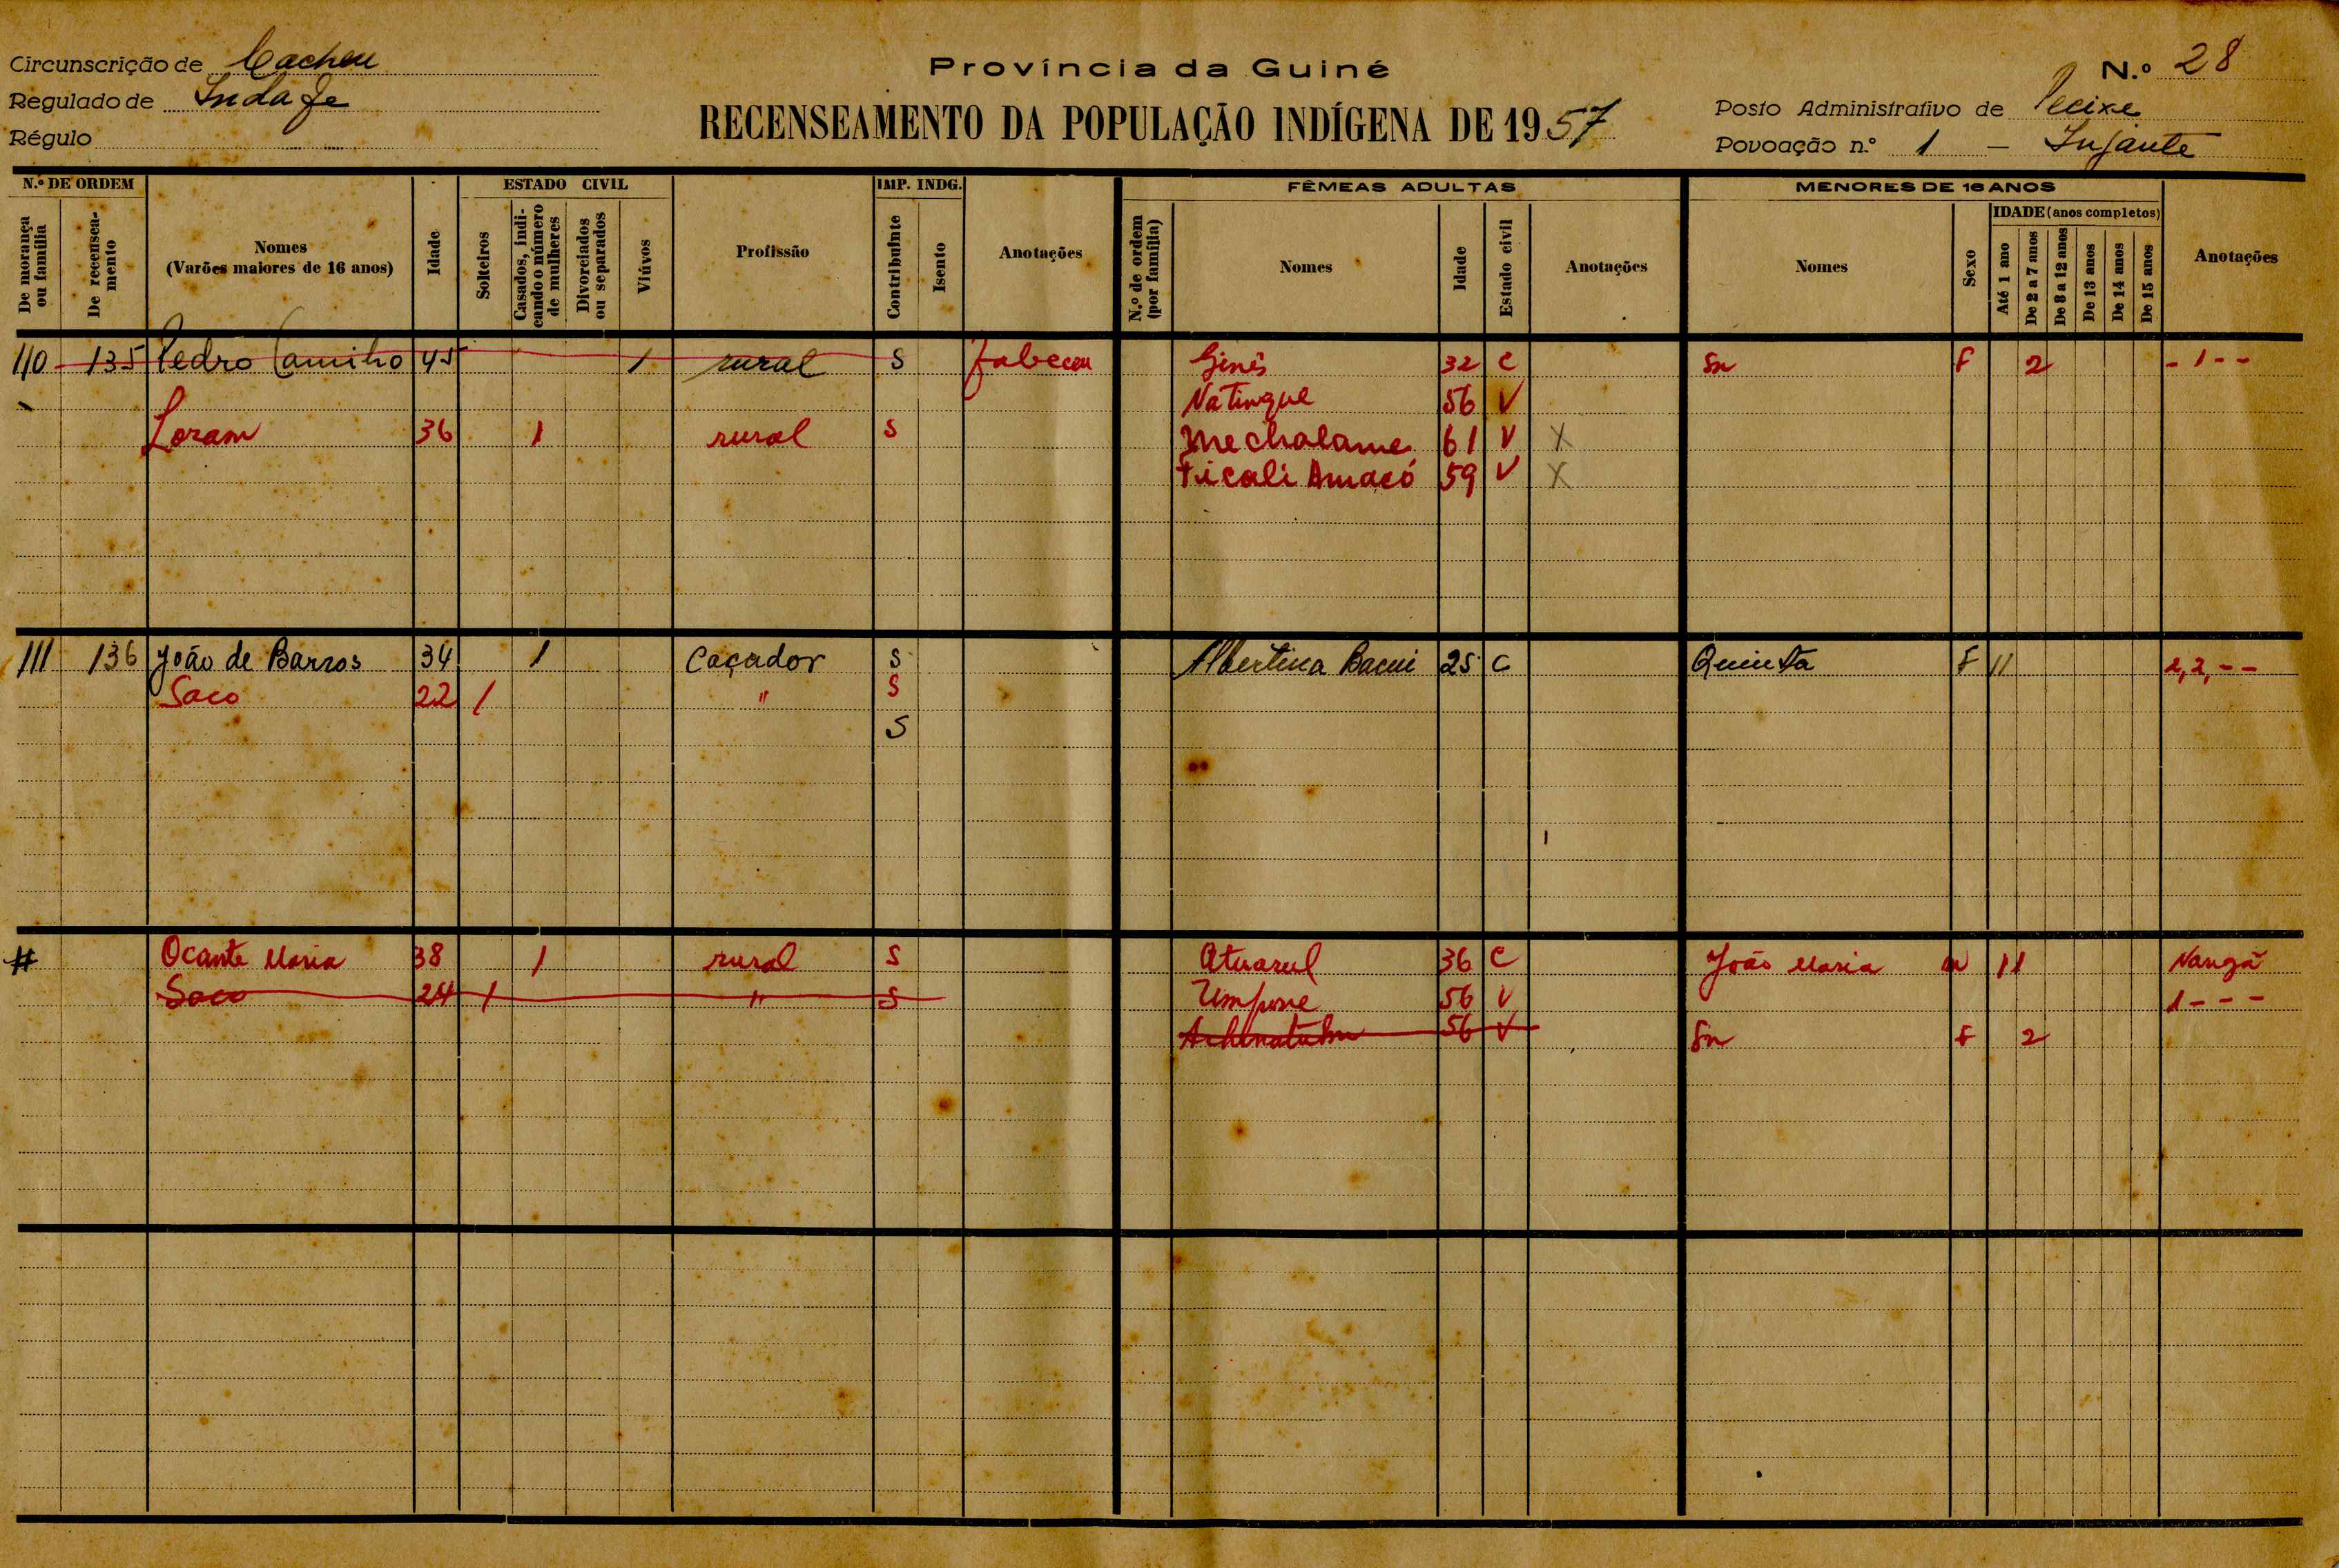 Circunscrição de Cacheu
Regulado de Indafe
Régulo
Província da Guiné
RECENSEAMENTO DA POPULAÇÃO INDÍGENA DE 1957
N.º 28
Posto Administrativo de Pecixe
Povoação n.º 1 —
N.º DE ORDEM ESTADO CIVIL IMP. INDG. FÊMEAS ADULTAS MENORES DE 16 ANOS
IDADE (anos completos)
De morança ou família
De recenseamento
Nomes (Varões maiores de 16 anos)
Idade
Solteiros
Casados, indicando o número de mulheres
Divorciados ou separados
Viúvos
Profissão
Contribuinte
Isento
Anotações
N.º de ordem (por família)
Nomes
Idade
Estado civil
Anotações
Nomes
Sexo
Até 1 ano
De 2 a 7 anos
De 8 a 12 anos
De 13 anos
De 14 anos
De 15 anos
Anotações
110 135 Pedro Camilho 45 1 rural S Ginês 32 C Sn F 2 - 1 - -
Natinque 56 V
Loram 36 1 rural S Mechalame 61 V X
Ficali 59 V X
111 136 João de Barros 34 1 Caçador S Albertina 25 C Quinta F 11 2, 2, - -
Saco 22 1 " S
S
# Ocante Maria 38 1 rural S Atuarul 36 C João Maria M 11 Nangã
Saco 24 1 " S 56 V 1 - - -
56 V Sn F 2